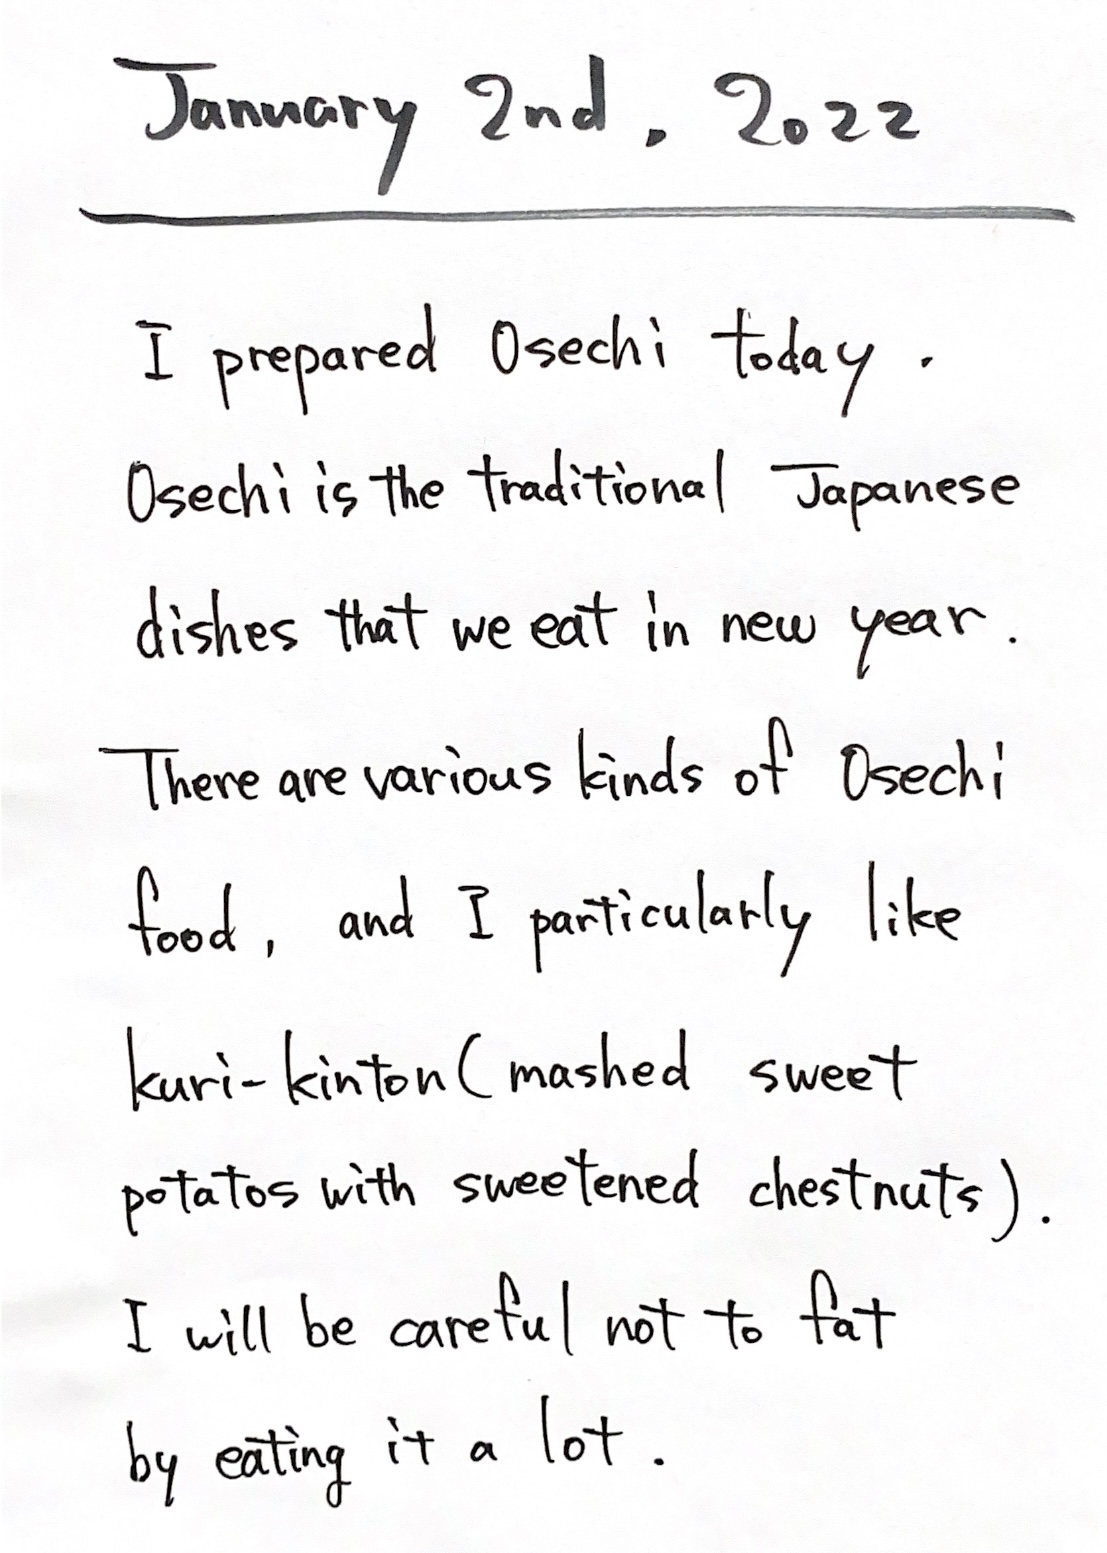 January 2nd, 2022
I prepared Osechi today.
Osechi is the traditional Japanese
dishes that we eat in new year.
There are various kinds of Osechi
food, and I particularly like
kuri-kinton(mashed sweet
potatos with sweetened chestnuts).
I will be careful not to fat
by eating it a lot.